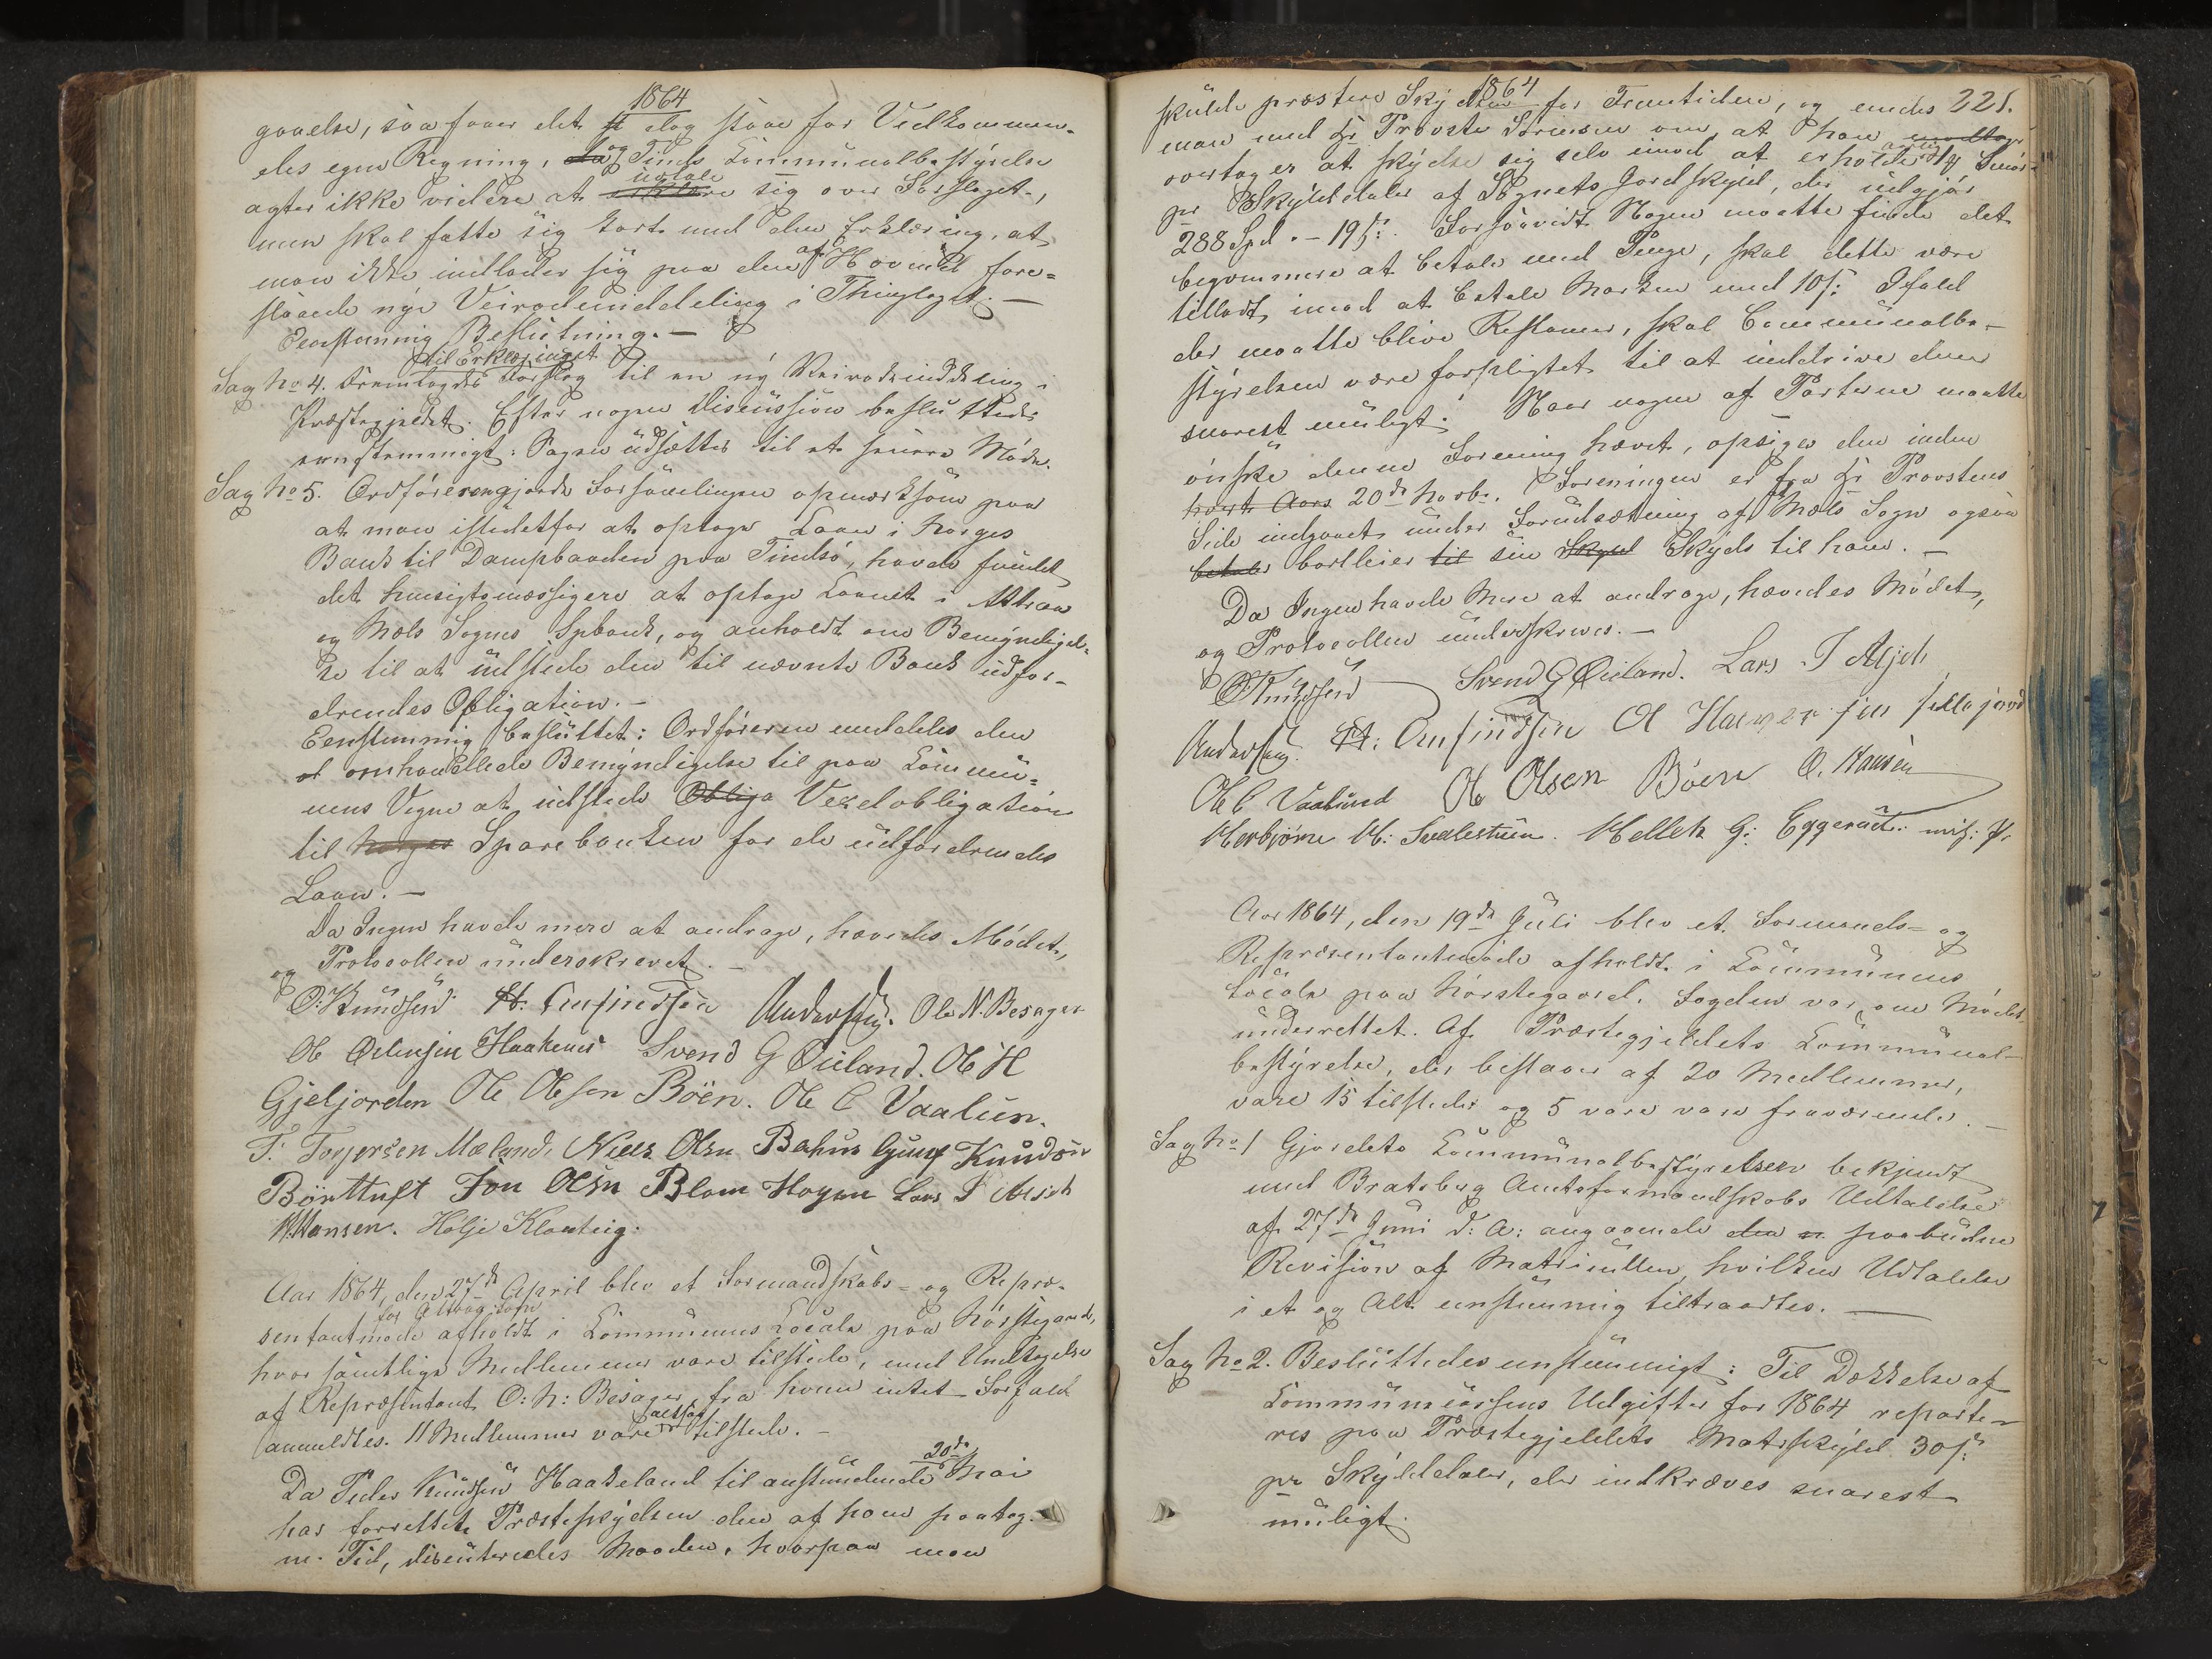 1864
gaaelse, saa faaer det dog staae for Vedkommen-
des egen Regning, da og Tinds Communalbestyrelse
agter ikke videre at erklære udtale sig over Forslaget,
men skal fatte sig kort med den Erklæring, at
man ikke indlader sig paa den af Hovind fore-
slaaede nye Veirodeinddeling i Thinglaget. —
Eenstemmig Beslutning. —
Sag No 4. Fremlagdes til Erklæringet Forslag til en ny Veirodeinddeling i
Præstegjeldet. Efter nogen Discussion besluttedes
eenstemmigt: Sagen udsættes til et senere Møde.
Sag No 5. Ordføreren gjorde Forsamlingen opmærksom paa
at man istedetfor at optage Laan i Norges
Bank til Dampbaaden paa Tindsø, havde fundet
det hensigtsmæssigere at optage Laanet i Attraa
og Mæls Sognes Spbank, og anholdt om Bemyndigel-
se til at udstede den til nævnte Bank udfor-
drendes Obligation. —
Eenstemmig besluttet: Ordføreren meddeles den
omhandlede Bemyndigelse til paa Commu-
nens Vegne at udstede Obliga Vexelobligation
til Norges Sparebanken for de udfordrendes
Laan. —
Da Ingen havde mere at andrage, hævedes Mødet,
og Protocollen underskrevet. —
O: Knudsen H. Amfindsen Andersen. Ole N. Besager
Ole Østensen Haakenes Svend G Øiland. Ole H
Gjeljorden Ole Olsen Böen. Ole C Vaalun.
T. Torjersen Mæland. Niels Olsn Bakhus Gunf Knudsen
Børttuft Jon Olsn Blom Hogen Lars I Aasch
H. Hansen. Holje Klonteig.
Aar 1864, den 27de April blev et Formandskabs- og Repræ-
sentantmøde for Attraa Sogn afholdt i Communens Locale paa Nørstegaard,
hvor samtlige Medlemmer vare tilstede, med Undtagelse
af Repræsentant O: N: Besager, fra hvem intet Forfald
anmeldtes. 11 Medlemmer vare altsaa tilstede. —
Da Peder Knudsen Haakeland til anstundende 20de Mai
har forrettet Præsteskydsen den af ham paatag-
ne Tid, discuteredes Maaden, hvorpaa man
1864
221.
skulde præstere Skydsen for Fremtiden, og enedes
man med Hr Provste Sörensen om, at han modtager
overtager at skydse sig selv imod at erholde aarlig 1/4 Smør-
pr Skylddaler af Sognets Jordskyld, der udgjør
288 Spd. – 19 s:. Forsaavidt Nogen maatte finde det
beqvemmere at betale med Penge, skal dette være
tilladt, imod at betale Marken med 10 s: Ifald
der maatte blive Restancer, skal Communalbe-
styrelsen være forpligtet til at inddrive dem
snarest muligt. Naar nogen af Parterne maatte
ønske denne Forening hævet, opsiges den inden
hvert Aars 20de Novbr. Foreningen er fra Hr Provstens
Side indgaaet under Forudsætning af Mæls Sogn ogsaa
betaler bortleier til sin Skyd Skyds til ham. —
Da Ingen havde Mere at andrage, hævedes Mødet,
og Protocollen underskreves. —
O Knudsen Svend G Øiland. Lars I
Andersen. H: Amfindsen Ol Haaversen
Ole C Vaalund Ole Olsen Böen O. Hansen
Herbjørn H: Svalestuen. Hellek G: Eggerud: m:f: P.
Aar 1864, den 19de Juli blev et Formands- og
Repræsentantmøde afholdt i Communens
Locale paa Nørstegaard. Fogden var om Mødet
underrettet. Af Præstegjeldets Communal-
bestyrelse, der bestaaer af 20 Medlemmer,
vare 15 tilstede og 5 vare vare fraværende. —
Sag No 1 Gjordets Communalbestyrelsen bekjendt
med Bratsberg Amtsformandskabs Udtalelse
af 27de Juni d: A: angaaende den paabudne
Revision af Matriculen, hvilken Udtalelse
i et og Alt eenstemmig tiltraadtes. —
Sag No 2. Besluttedes eenstemmigt: Til Dækkelse af
Communcassens Udgifter for 1864 reparte-
res paa Præstegjeldets Matrskyld 30 s:
pr Skylddaler, der indkræves snarest
muligt.